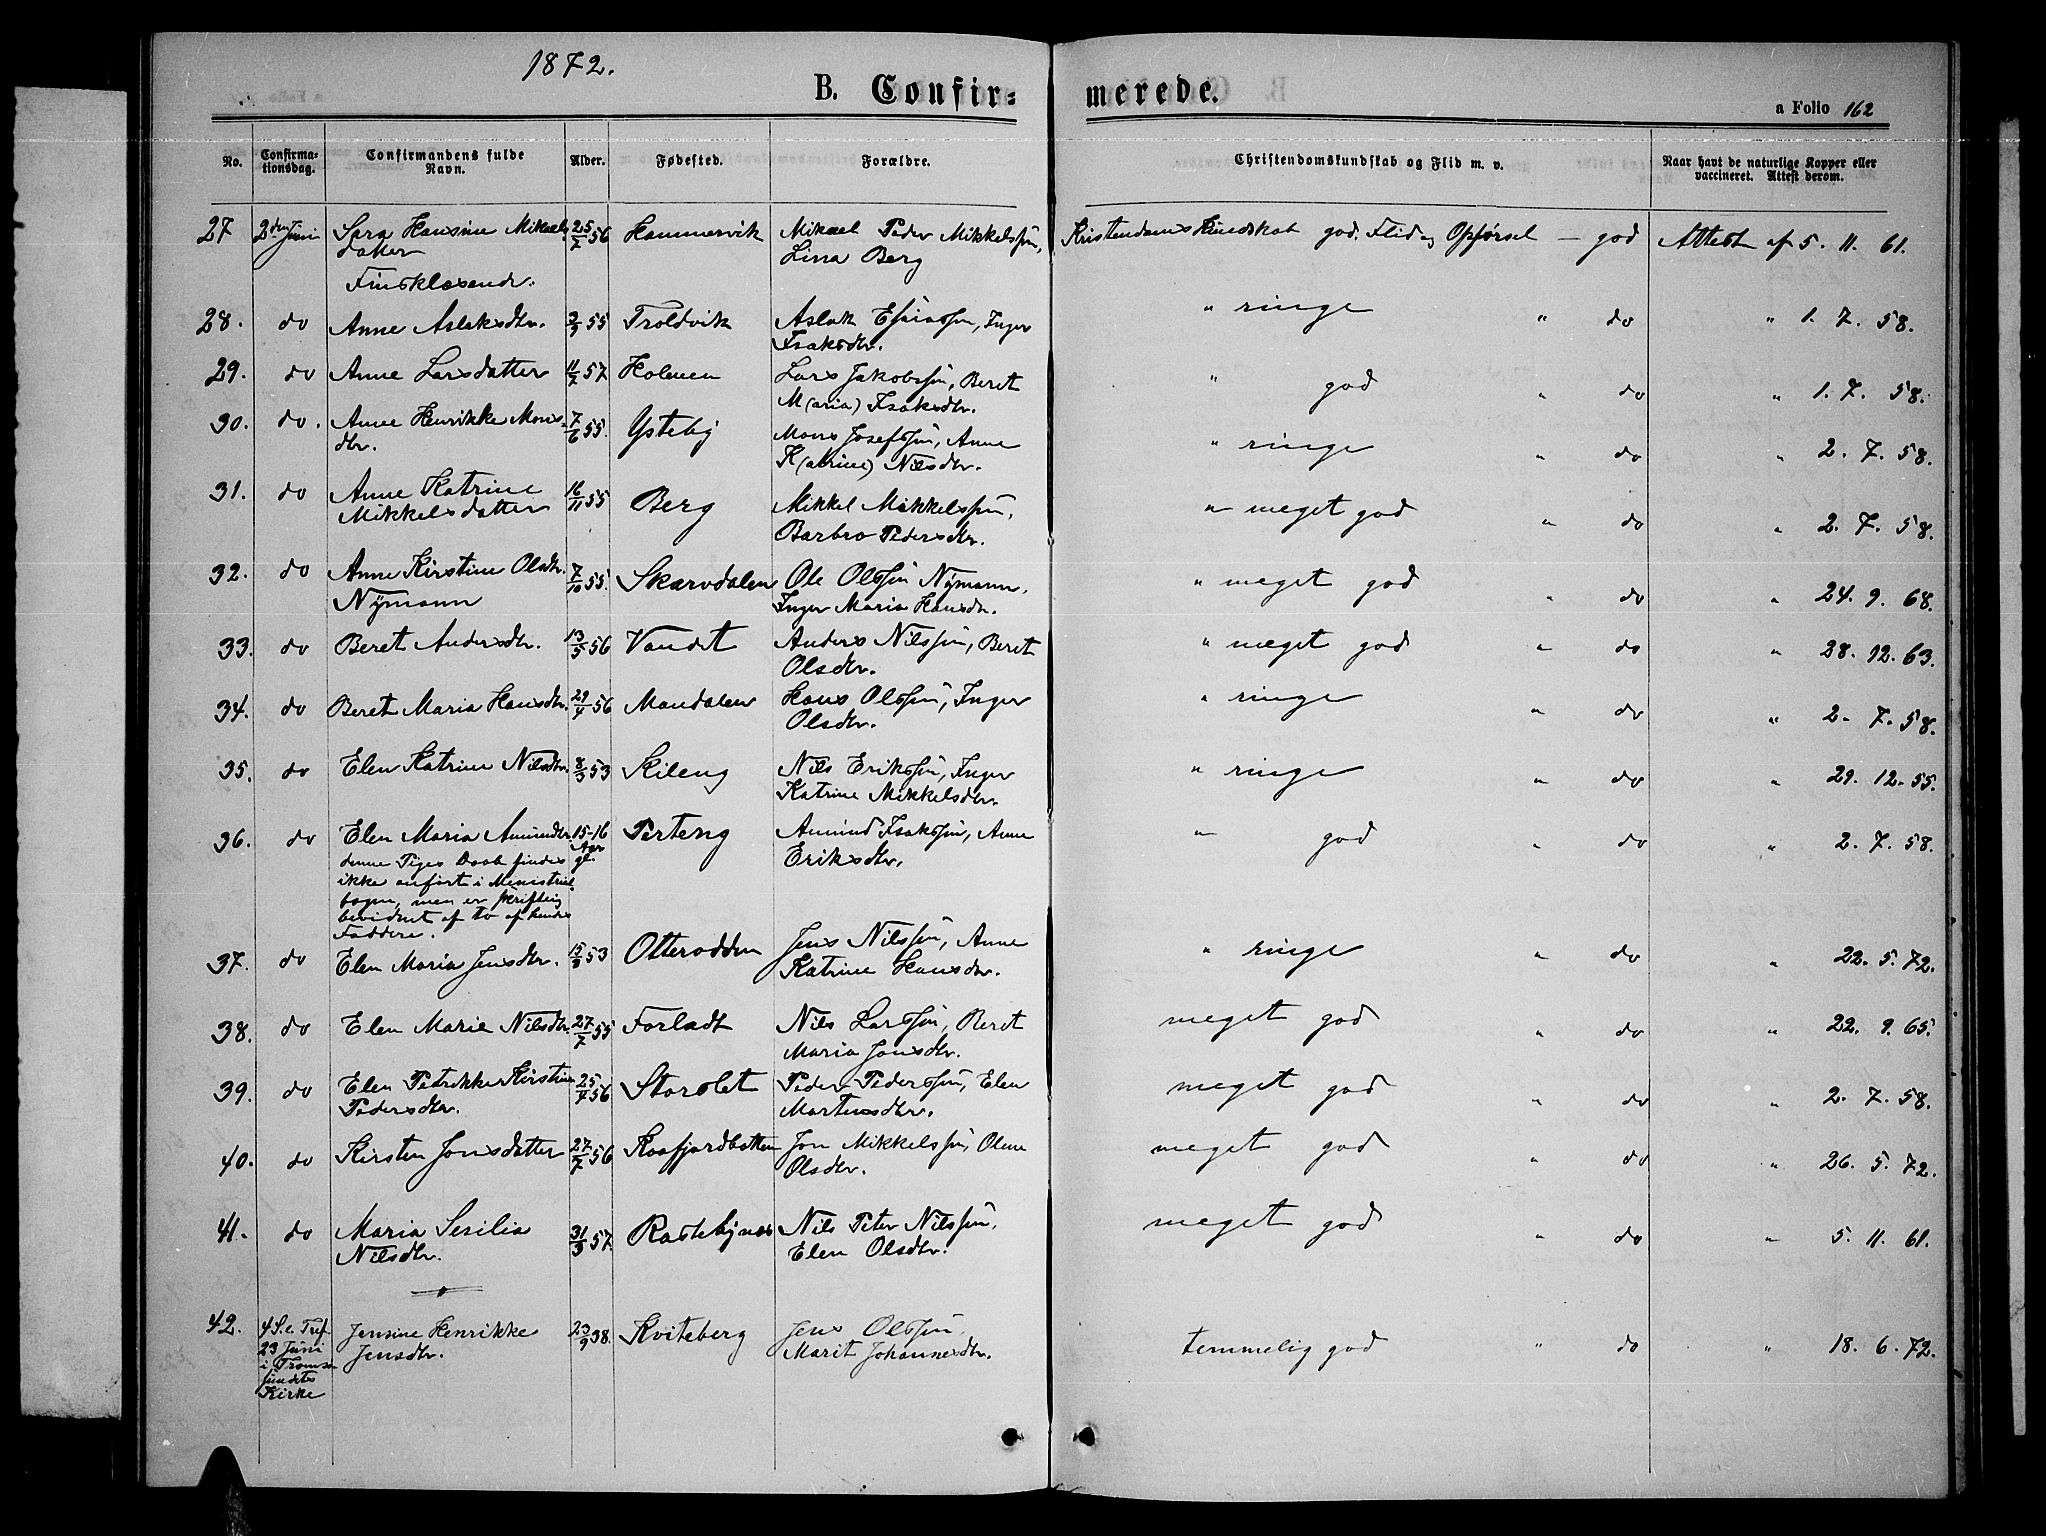 1872.
B. Confir=
merede.
a Folio 162
No.
Confirma-
tionsdag.
Confirmandens fulde
Navn.
Alder.
Fødested.
Forældre.
Christendomskundskab og Flid m. v.
Naar havt de naturlige Kopper eller
vaccineret. Attest derom.
27 2den Juni Sara Hansine Mikaels 25/7 56 Hammervik Mikael Peder Mikkelssøn, Kristendomskundskab god. Flid og Opførsel — god Attest af 5. 11. 61.
datter Lina Berg
Finsklæsende.
28. do Anne Aslaksdtr. 55 Troldvik Aslak Esaiassøn, Inger " ringe " do " 1. 7. 58.
Isaksdtr.
29. do Anne Larsdatter 11/2 57 Holmen Lars Jakobssøn, Beret " god " do " 1. 7. 58.
M(aria) Isaksdtr.
30. do. Anne Henrikke Mons- 7/6 55. Ysteby Mons Josefssøn, Anne " ringe " do " 2. 7. 58.
dtr. K(atrine) Nilsdtr.
31. do Anne Katrine 16/11 55 Berg Mikkel Mikkelssøn, " meget god " do " 2. 7. 58.
Mikkelsdatter Barbro Pedersdtr.
32. do Anne Kirstine Olsdtr. 7/10 55. Skarvdalen Ole Olssøn Nymann, " meget god " do " 24. 9. 68.
Nymann Inger Maria Hansdtr.
33. do Beret Andersdtr. 13/5 56 Vandet Anders Nilssøn, Beret " meget god " do " 28. 12. 63.
Olsdtr.
34. do Beret Maria Hansdtr. 29/4 56 Mandalen Hans Olssøn, Inger " ringe " do " 2. 7. 58.
Olsdtr.
35. do Elen Katrine Nilsdtr. 8/3 53 Skileng Nils Erikssøn, Inger " ringe " do " 29. 12. 55.
Katrine Mikkelsdtr.
36. do Elen Maria Amundsdtr. 15-16 Perteng Amund Isakssøn, Anne " god " do " 2. 7. 58.
denne Piges Daab findes Aar gl. Eriksdtr.
ikke anført i Ministrial-
bogen, men er skriftlig
bevidnet af to af hendes
Faddere.
37. do Elen Maria Jensdtr. 53 Otterodden Jens Nilssøn, Anne " ringe " do " 22. 5. 72.
Katrine Hansdtr.
38. do Elen Marie Nilsdtr. 27/7 55 Forladt Nils Larssøn, Beret meget god " do " 22. 9. 65.
Maria Jonsdtr.
39. do Elen Petrikke Kirstine 56 Storslet Peder Pederssøn, Elen meget god " do " 2. 7. 58.
Pedersdtr. Mortensdtr.
40. do Kirsten Jonsdatter 27/7 56 Kaafjordbotten Jon Mikkelssøn, Olene meget god " do " 26. 5. 72.
Olsdtr.
41. do Maria Sesilia 31/3 57. Rastebynes Nils Peter Nilssøn, meget god " do " 5. 11. 61.
Nilsdtr. Elen Olsdtr.
42. 4 S. e. Tref. Jensine Henrikke 23/9 38. Kviteberg Jens Olssøn, temmelig god " do " 18. 6. 72.
23 Juni Jensdtr. Marit Johannesdtr.
i Tromsø
sundets
Kirke